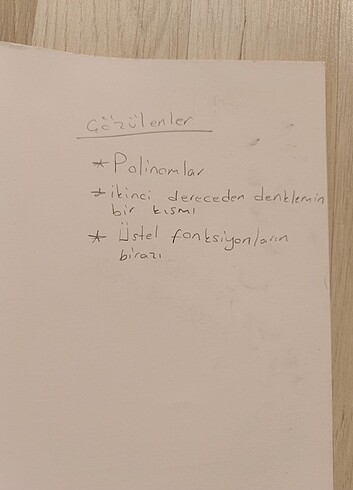 Çözülenler
* Polinomlar
* ikinci dereceden denklemin
bir kısmı
* Üstel fonksiyonların
birazı